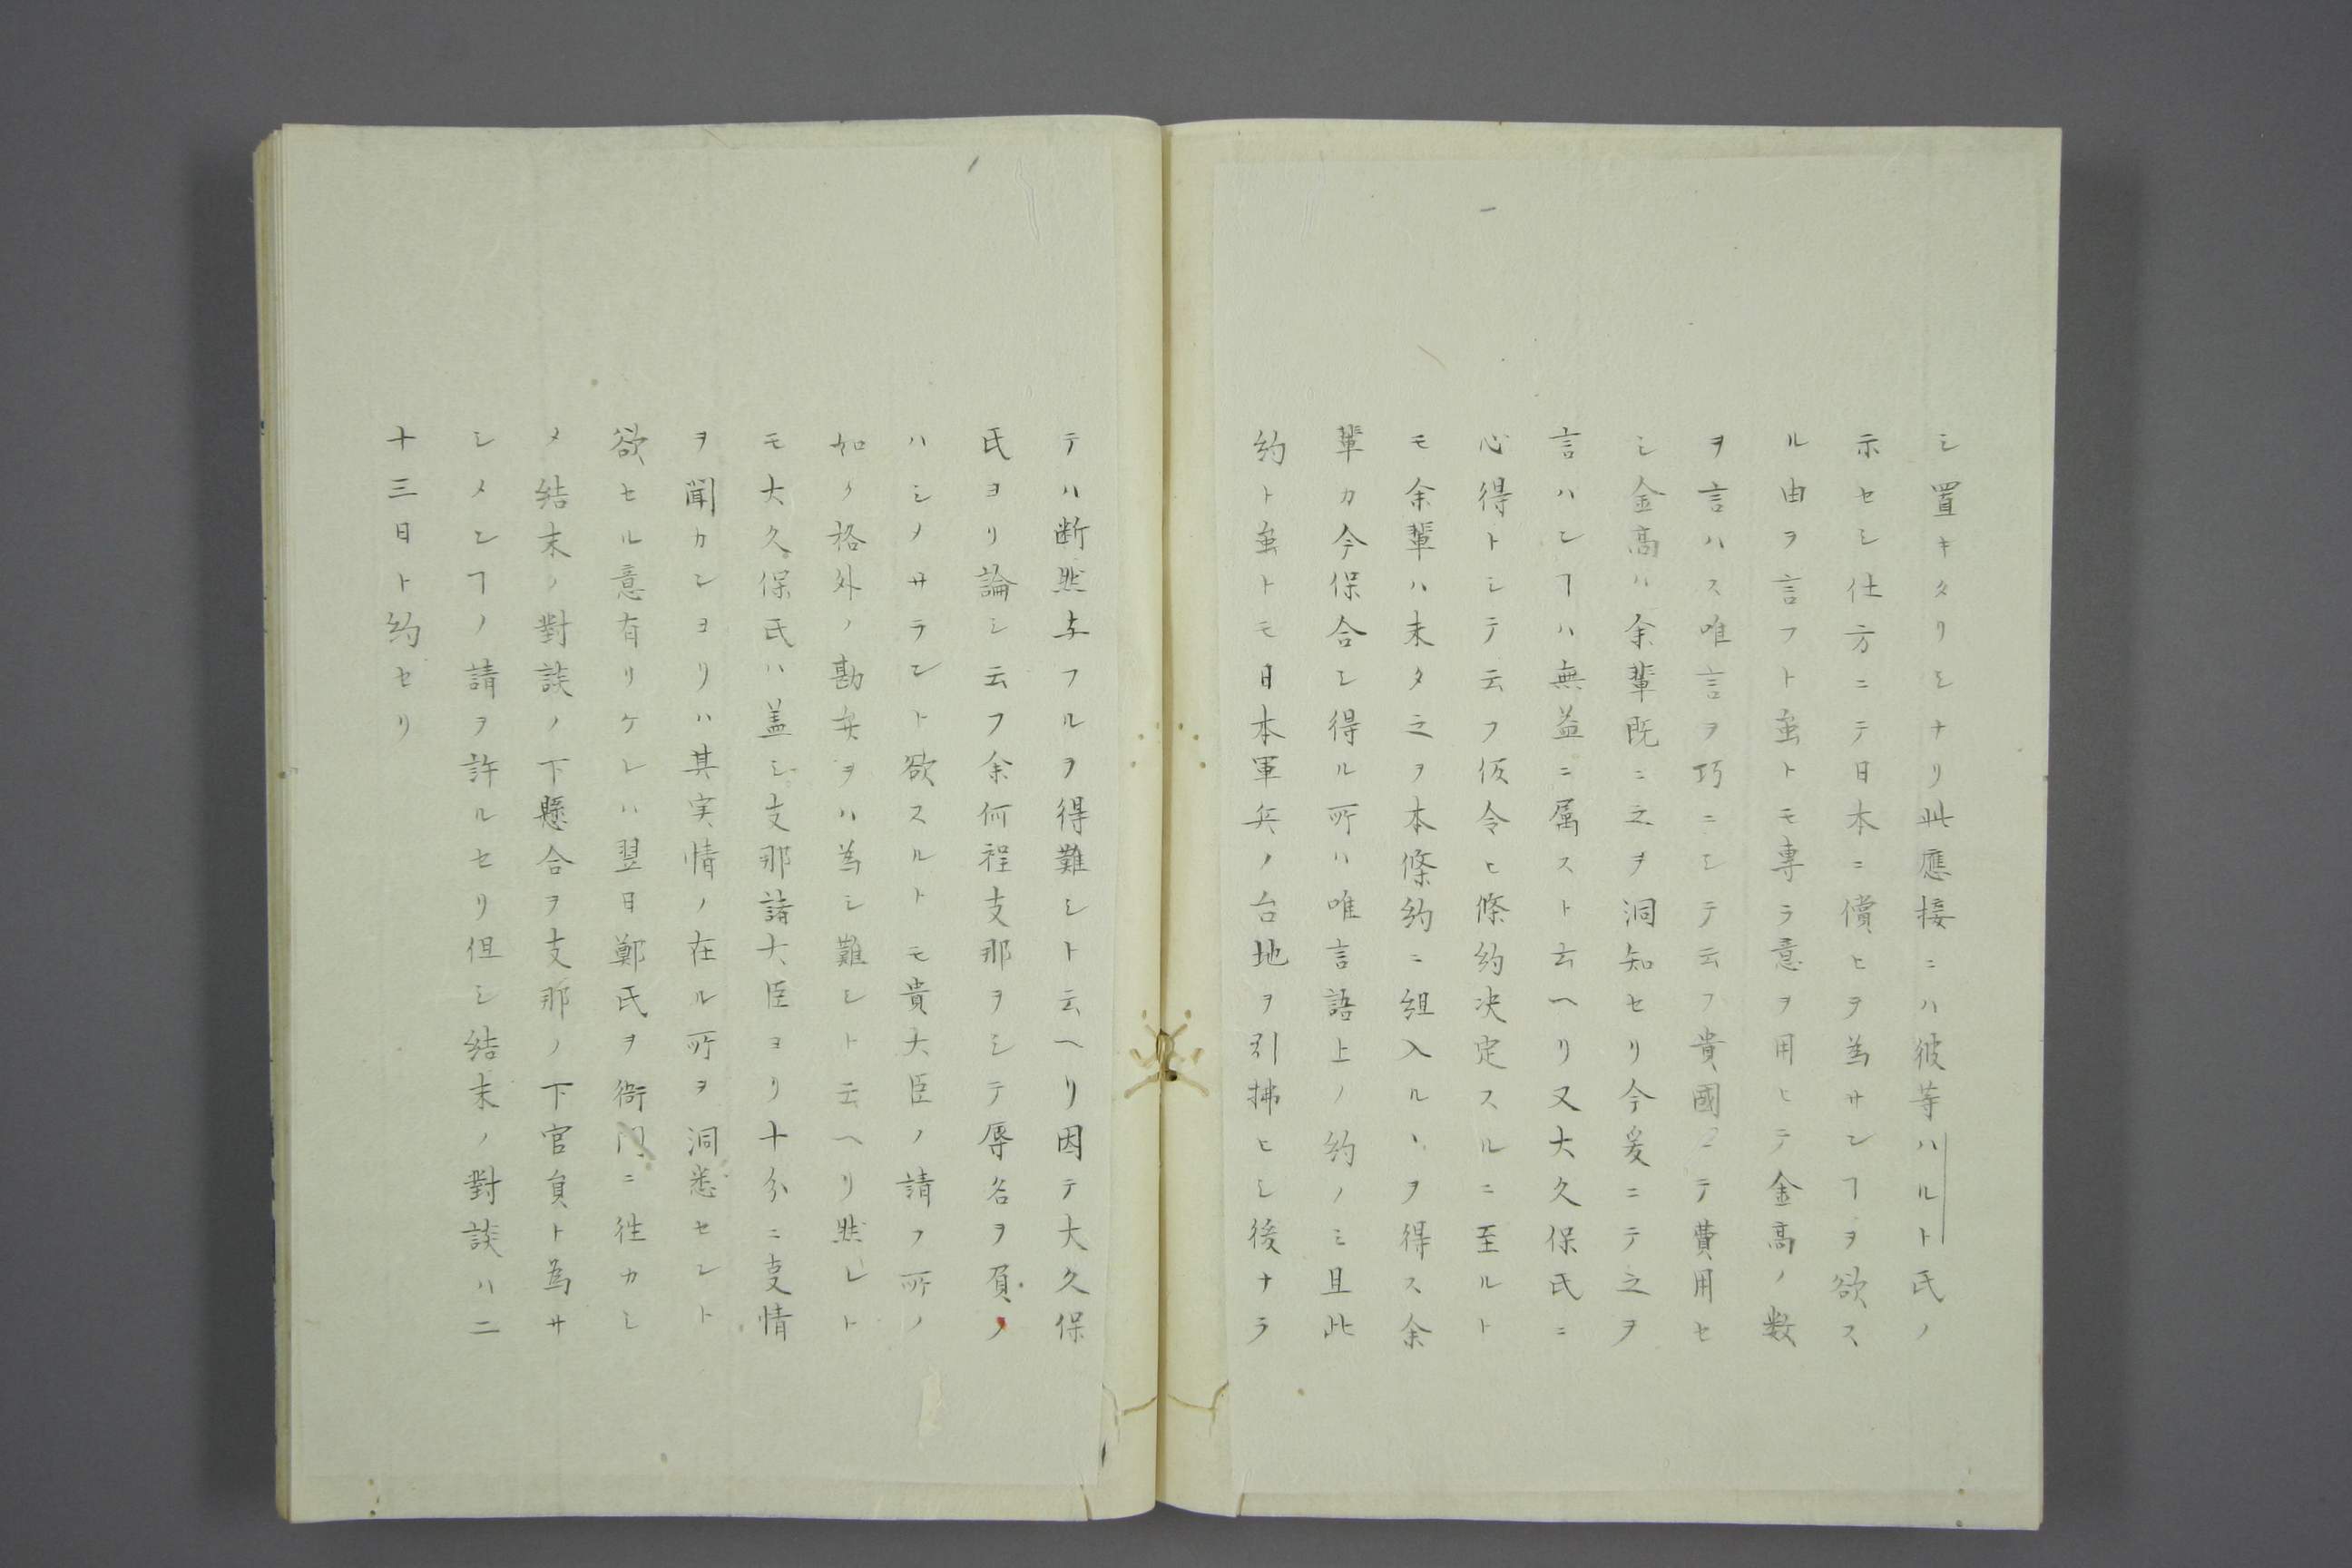 シ置キタリシナリ此應接ニハ彼等ハルト氏ノ
示セシ仕方ニテ日本ニ償ヒヲ為サンヿヲ欲ス
ル由ヲ言フト虽トモ専ラ意ヲ用ヒテ金高ノ数
ヲ言ハス唯言ヲ巧ニシテ云フ貴國ニテ費用セ
シ金高ハ余輩既ニ之ヲ洞知セリ今爰ニテ之ヲ
言ハンヿハ無益ニ属スト云ヘリ又大久保氏ニ
心得トシテ云フ仮令ヒ條約决定スルニ至ルト
モ余輩ハ未タ之ヲ本條約ニ組入ルヽヲ得ス余
輩カ今保合シ得ル所ハ唯言語上ノ約ノミ且此
約ト虽トモ日本軍兵ノ台地ヲ引拂ヒシ後ナラ
テハ断然与フルヲ得難シト云ヘリ因テ大久保
氏ヨリ論シ云フ余何程支那ヲシテ辱名ヲ負ノ
ハシノサラント欲スルトモ貴大臣ノ請フ所ノ
如ク格外ノ勘弁ヲハ為シ難シト云ヘリ然レト
モ大久保氏ハ盖シ支那諸大臣ヨリ十分ニ支情
ヲ聞カンヨリハ其実情ノ在ル所ヲ洞悉セント
欲セル意有リケレハ翌日鄭氏ヲ衙門ニ往カシ
メ結末ノ對談ノ下懸合ヲ支那ノ下官員ト為サ
シメンヿノ請ヲ許ルセリ但シ結末ノ對談ハ二
十三日ト約セリ